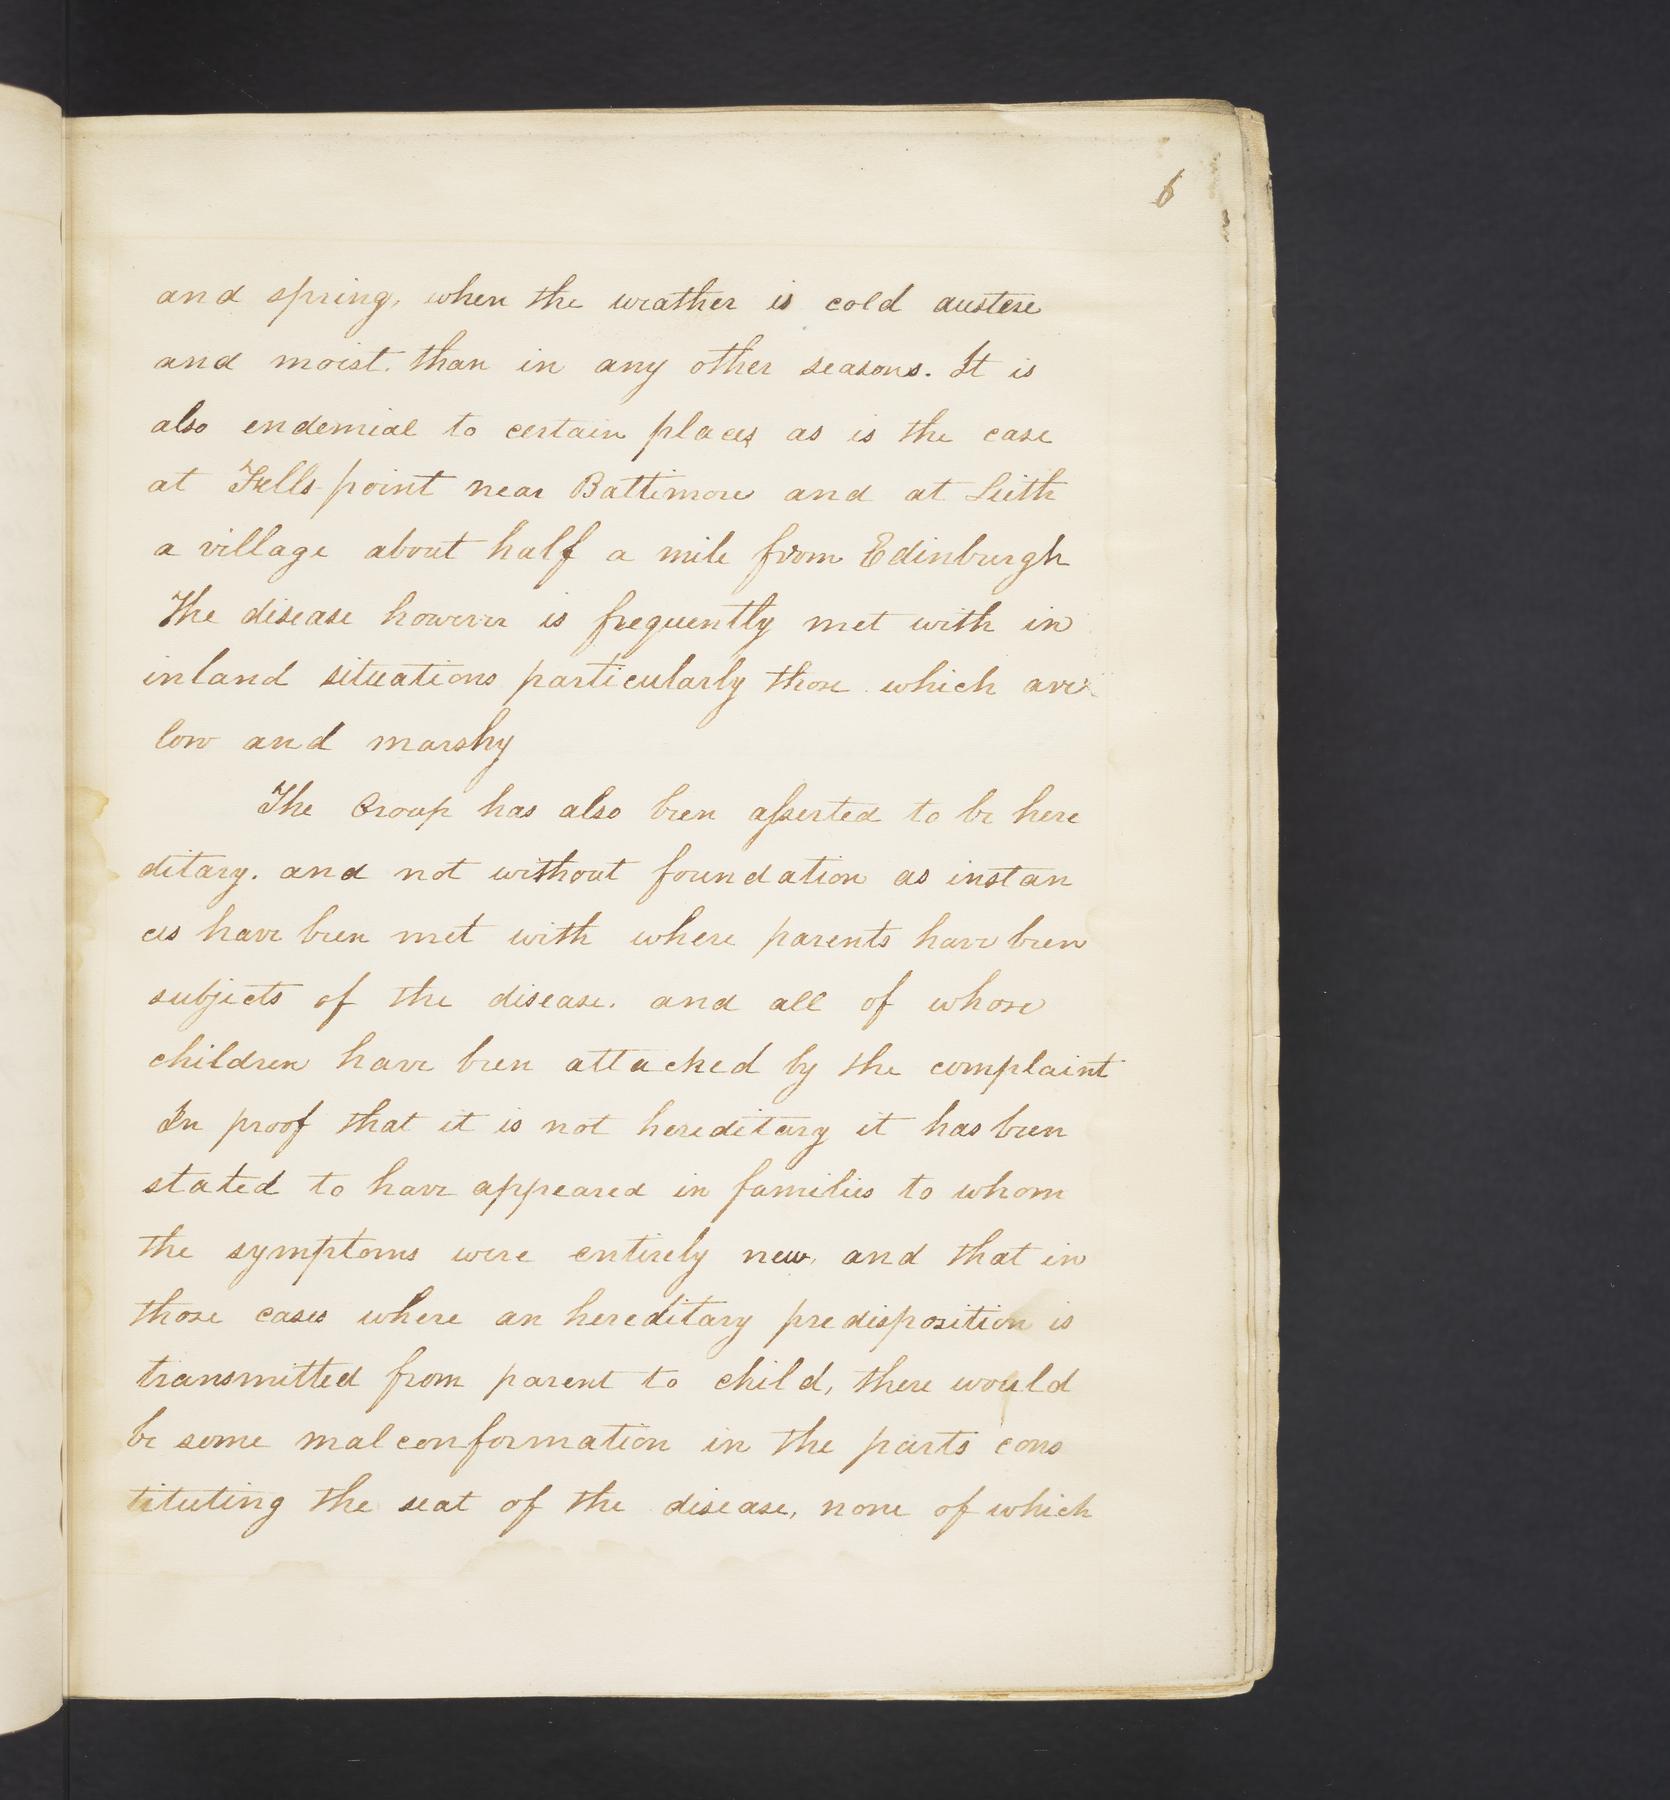 6
and spring, when the weather is cold austere
and moist. than in any other seasons. It is
also endemial to certain places as is the case
at Fells-point near Baltimore and at Leith
a village about half a mile from Edinburgh
The disease however is frequently met with in
inland situations particularly those which are
low and marshy
The Croup has also been aſserted to be here
ditary. and not without foundation as instan
ces have been met with where parents have been
subjects of the disease. and all of whose
children have been attacked by the complaint
In proof that it is not hereditary it has been
stated to have appeared in families to whom
the symptoms were entirely new, and that in
those cases where an hereditary predisposition is
transmitted from parent to child, there would
be some malconformation in the parts cons
tituting the seat of the disease, none of which